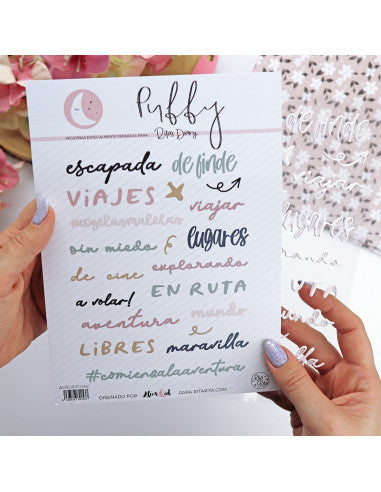 Puffy
PEGATINAS ESPECIALMENTE PENSADAS PARA
Rita Diary
escapada de finde
VIAJES
viajar
#cogelasmaletas
sin miedo
lugares
de cine explorando
a volar! EN RUTA
aventura mundo
LIBRES maravilla
#comienzalaaventura
DISEÑADO POR
PARA RITARITA.COM
de finde
viajar
lugares